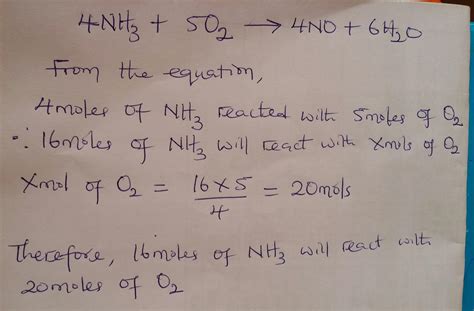 4NH₃ + 5O₂ → 4NO + 6H₂O
From the equation,
4moles of NH₃ reacted with 5moles of O₂
∴ 16moles of NH₃ will react with Xmols of O₂
Xmol of O₂ = 16 × 5 / 4 = 20mols
Therefore, 16moles of NH₃ will react with
20moles of O₂